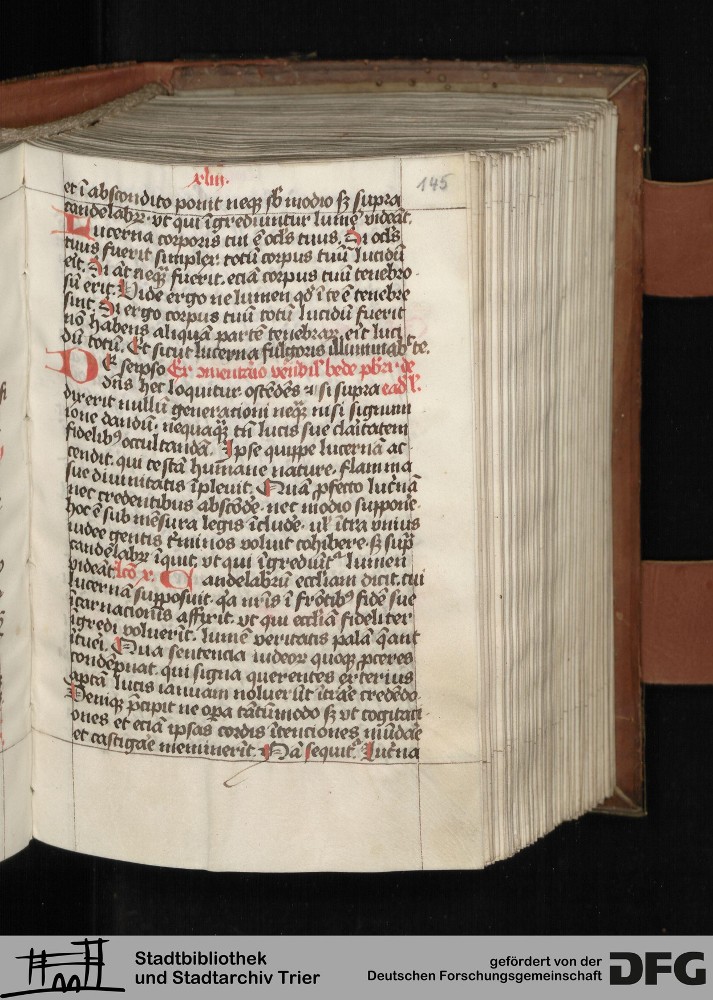 xliij.
145
et ī abscondito ponit neqʒ sb modio sʒ supra
candelabrꝝ. vt qui īgrediuntur lumē videāt.
Lucerna corporis tui ē ocls tuus. Si ocls
tuus fuerit simplex totū corpus tuū lucidū
eit. Si āt neqʒ fuerit. eciā corpus tuū tenebro
sū erit. Vide ergo ne lumen qd ī te ē tenebre
sint. Si ergo corpus tuū totū lucidū fuerit
nō habens aliquā partē tenebraꝝ. eit luci
dū totū. Et sicut lucerna fulgoris illuminabᵗ te.
De seipso Ex omentaio venbil bede pbri. de
dns hec loquitur ostēdēs si supra ead l.
dixerit nullū generationi neqʒ nisi signum
ione dandū. nequaqʒ tn lucis sue claitatem
fidelibꝰ occultandā. Ipse quippe lucernā ac
cendit. qui testā humane nature. flamma
sue diuinitatis īpleuit. Quā ꝓfecto luc̄nā
nec credentibus abscōde. nec modio suppone.
hoc ē sub mēsura legis īclude. ul ītra vnius
iudee gentis t̄minos voluit cohibere. sʒ sup
candelabrꝝ īquit. vt qui īgrediūt lumen
videāt. lco x. Candelabrū eccliam dicit. cui
lucernā supposuit. qa nris ī frōtibꝰ fidē sue
īcarnacionis affixit. vt qui eccliā fideliter
īgredi voluerit. lumē veritatis palā qant
ītuei. Qua sentencia iudeoꝝ quoqʒ pceres
condēpnat. qui signa querentes exterius
aptā lucis ianuam noluerūt ītrae credēdo.
Deniqʒ p̄cipit ne opa tātūmodo sʒ vt cogitati
ones et eciā ipsas cordis ītenciones mūdae
et castigae meminerit. Nā sequit. Luc̄na
Stadtbibliothek
und Stadtarchiv Trier
gefördert von der
Deutschen Forschungsgemeinschaft
DFG